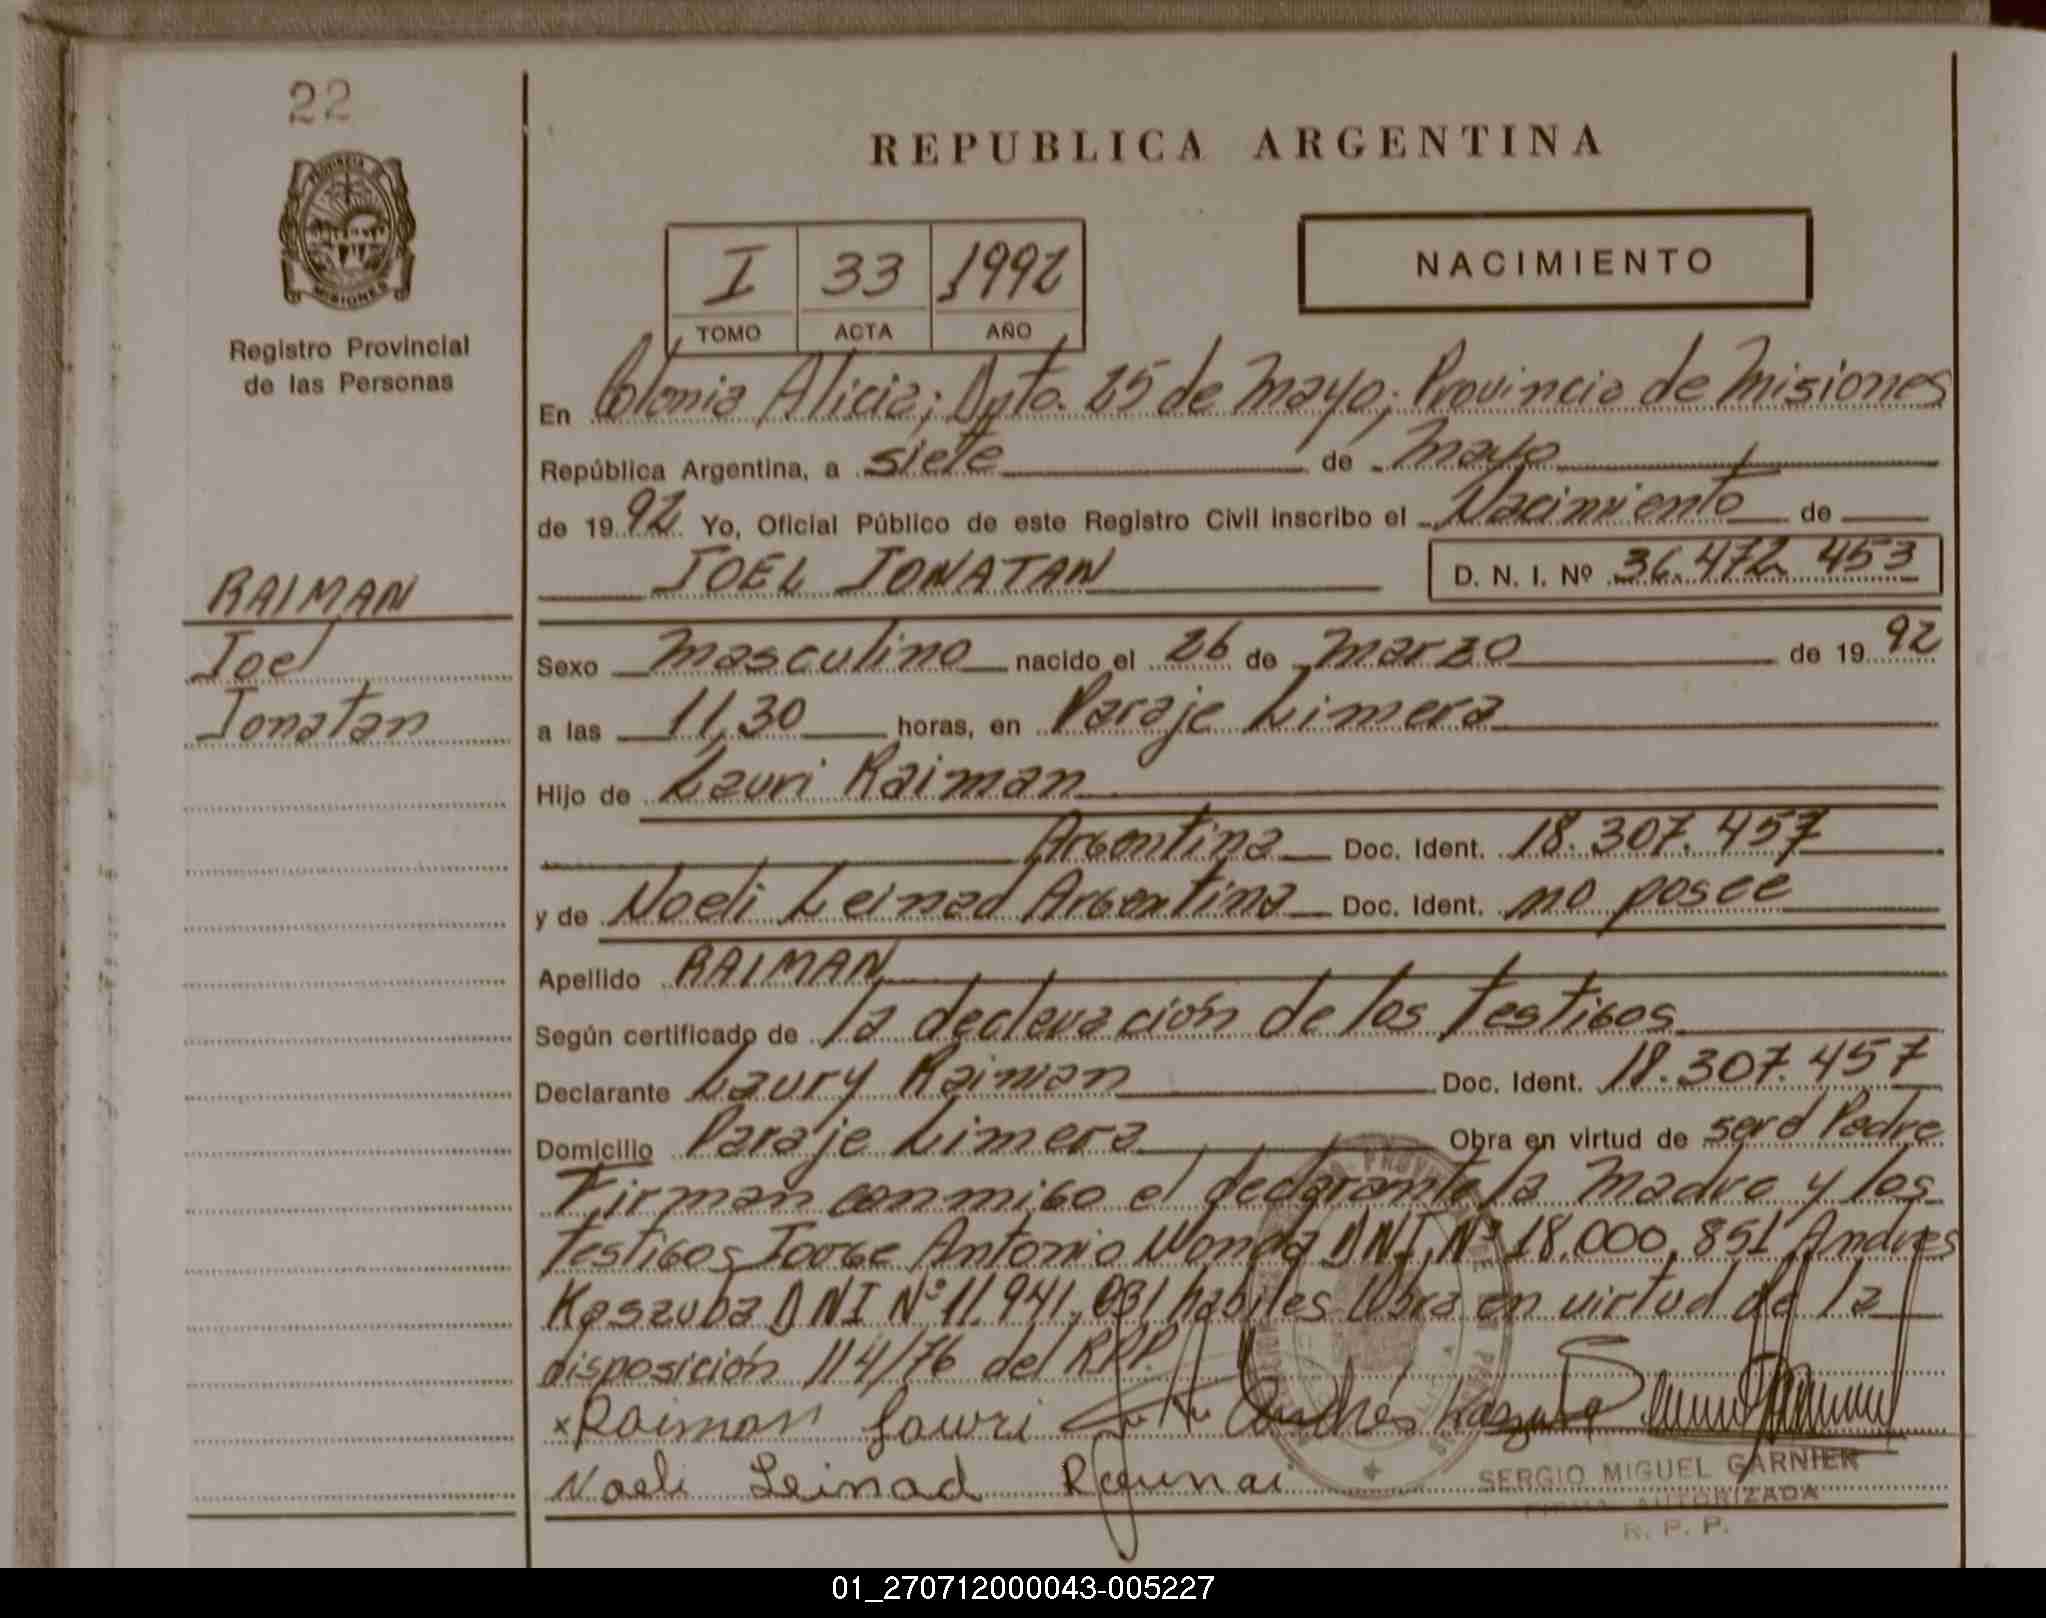 22
PROVINCIA D
MISIONES
Registro Provincial
de las Personas
RAIMAN
Joel
Jonatan
REPUBLICA ARGENTINA
I 33 1992
TOMO ACTA AÑO
NACIMIENTO
En Colonia Alicia; Dpto. 25 de Mayo; Provincia de Misiones
República Argentina, a siete de Mayo
de 1992 Yo, Oficial Público de este Registro Civil inscribo el Nacimiento de
JOEL JONATAN D. N. I. Nº 36.472 453
Sexo Masculino nacido el 26 de Marzo de 1992
a las 11,30 horas, en Paraje Limera
Hijo de Lauri Raiman
Argentina Doc. Ident. 18.307.457
y de Noeli Leinad Argentina Doc. Ident. no posee
Apellido RAIMAN
Según certificado de la declaración de los testigos
Declarante Laury Raiman Doc. Ident. 18.307.457
Domicilio Paraje Limera Obra en virtud de ser el Padre
Firman conmigo el declarante la Madre y los
testigos Jorge Antonio DNI Nº 18.000.851 Andres
Kaszuba DNI Nº 11.941.031 habiles Obra en virtud de la
disposición 114/76 del RPP.
x Raiman Lauri Andrés Kaszuba
Noeli Leinad
SERGIO MIGUEL GARNIER
FIRMA AUTORIZADA
R. P. P.
01_270712000043-005227